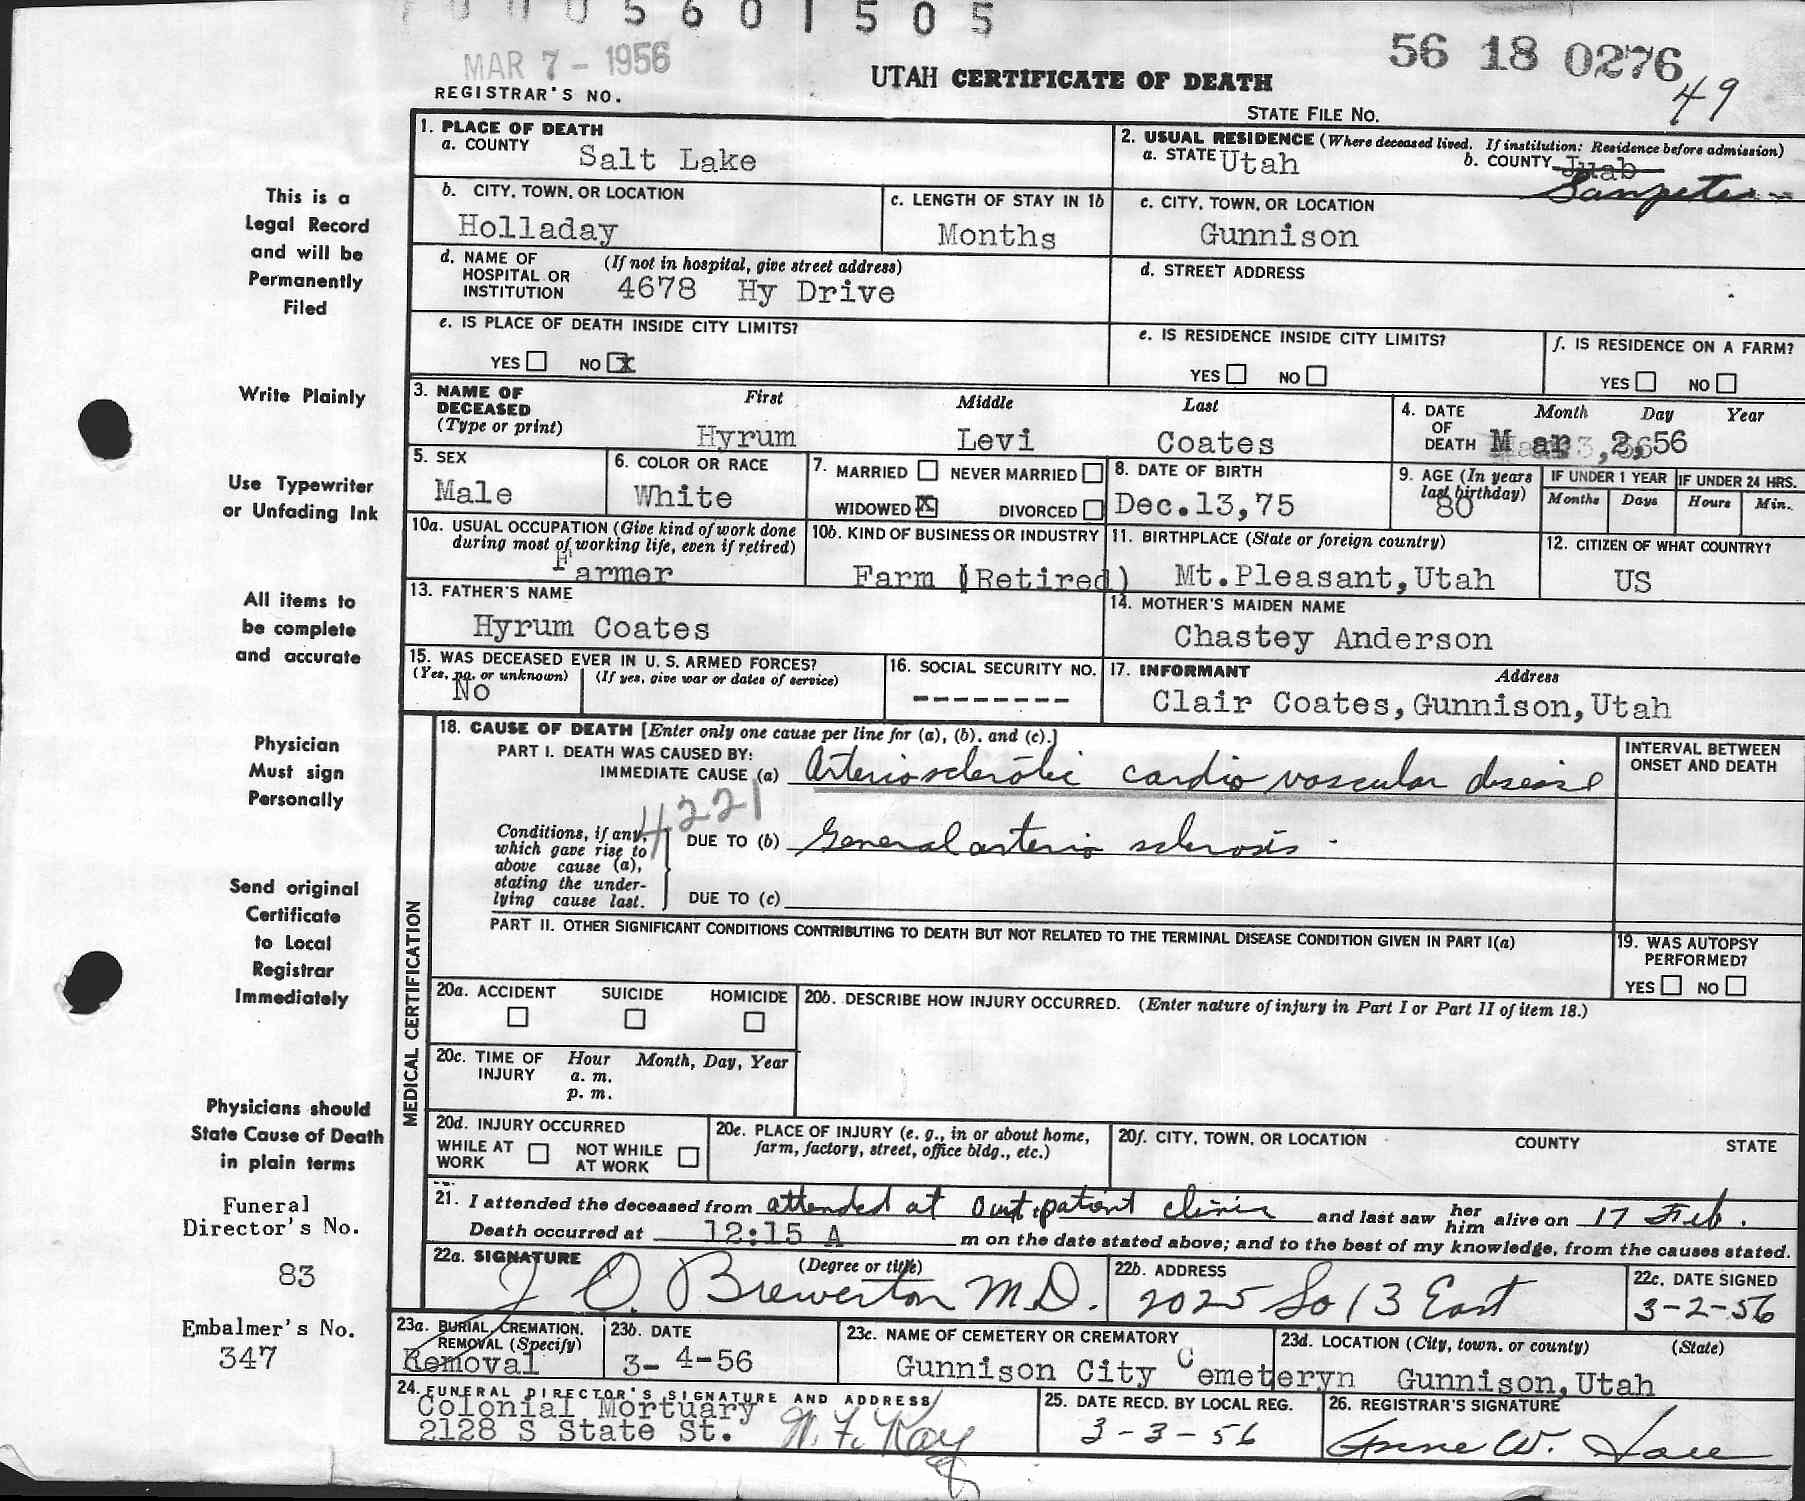 5 6 0 1 5 0 5
MAR 7 - 1956
56 18 0276
49
UTAH CERTIFICATE OF DEATH
REGISTRAR'S NO.
STATE FILE NO.
This is a
Legal Record
and will be
Permanently
Filed
Write Plainly
Use Typewriter
or Unfading Ink
All items to
be complete
and accurate
Physician
Must sign
Personally
Send original
Certificate
to Local
Registrar
Immediately
Physicians should
State Cause of Death
in plain terms
Funeral
Director's No.
83
Embalmer's No.
347
1. PLACE OF DEATH
a. COUNTY Salt Lake
2. USUAL RESIDENCE (Where deceased lived. If institution: Residence before admission)
a. STATE Utah b. COUNTY Juab
Sanpete
b. CITY, TOWN, OR LOCATION
Holladay
c. LENGTH OF STAY IN 1b
Months
c. CITY, TOWN, OR LOCATION
Gunnison
d. NAME OF HOSPITAL OR INSTITUTION (If not in hospital, give street address)
4678 Hy Drive
d. STREET ADDRESS
e. IS PLACE OF DEATH INSIDE CITY LIMITS?
YES NO X
e. IS RESIDENCE INSIDE CITY LIMITS?
YES NO
f. IS RESIDENCE ON A FARM?
YES NO
3. NAME OF DECEASED (Type or print)
First Middle Last
Hyrum Levi Coates
4. DATE OF DEATH Month Day Year
Mar 2, 56
5. SEX
Male
6. COLOR OR RACE
White
7. MARRIED NEVER MARRIED
WIDOWED X DIVORCED
8. DATE OF BIRTH
Dec.13,75
9. AGE (In years last birthday)
80
IF UNDER 1 YEAR IF UNDER 24 HRS.
Months Days Hours Min.
10a. USUAL OCCUPATION (Give kind of work done during most of working life, even if retired)
Farmer
10b. KIND OF BUSINESS OR INDUSTRY
Farm (Retired)
11. BIRTHPLACE (State or foreign country)
Mt.Pleasant,Utah
12. CITIZEN OF WHAT COUNTRY?
US
13. FATHER'S NAME
Hyrum Coates
14. MOTHER'S MAIDEN NAME
Chastey Anderson
15. WAS DECEASED EVER IN U. S. ARMED FORCES?
(Yes, no, or unknown) (If yes, give war or dates of service)
No
16. SOCIAL SECURITY NO.
--------
17. INFORMANT Address
Clair Coates,Gunnison,Utah
MEDICAL CERTIFICATION
18. CAUSE OF DEATH [Enter only one cause per line for (a), (b), and (c).]
PART I. DEATH WAS CAUSED BY:
IMMEDIATE CAUSE (a) Arteriosclerotic cardio vascular disease
INTERVAL BETWEEN ONSET AND DEATH
4221
Conditions, if any, which gave rise to above cause (a), stating the underlying cause last.
DUE TO (b) General arterio sclerosis
DUE TO (c)
PART II. OTHER SIGNIFICANT CONDITIONS CONTRIBUTING TO DEATH BUT NOT RELATED TO THE TERMINAL DISEASE CONDITION GIVEN IN PART I(a)
19. WAS AUTOPSY PERFORMED?
YES NO
20a. ACCIDENT SUICIDE HOMICIDE
20b. DESCRIBE HOW INJURY OCCURRED. (Enter nature of injury in Part I or Part II of item 18.)
20c. TIME OF INJURY Hour Month, Day, Year
a. m.
p. m.
20d. INJURY OCCURRED
WHILE AT WORK NOT WHILE AT WORK
20e. PLACE OF INJURY (e. g., in or about home, farm, factory, street, office bldg., etc.)
20f. CITY, TOWN, OR LOCATION COUNTY STATE
21. I attended the deceased from attended at out patient clinic and last saw her him alive on 17 Feb.
Death occurred at 12:15 A m on the date stated above; and to the best of my knowledge, from the causes stated.
22a. SIGNATURE (Degree or title)
J O. Brewerton M.D.
22b. ADDRESS
2025 So 13 East
22c. DATE SIGNED
3-2-56
23a. BURIAL, CREMATION, REMOVAL (Specify)
Removal
23b. DATE
3- 4-56
23c. NAME OF CEMETERY OR CREMATORY
Gunnison City Cemeteryn
23d. LOCATION (City, town, or county) (State)
Gunnison,Utah
24. FUNERAL DIRECTOR'S SIGNATURE AND ADDRESS
Colonial Mortuary
2128 S State St. W. F. Kay
25. DATE RECD. BY LOCAL REG.
3-3-56
26. REGISTRAR'S SIGNATURE
W.